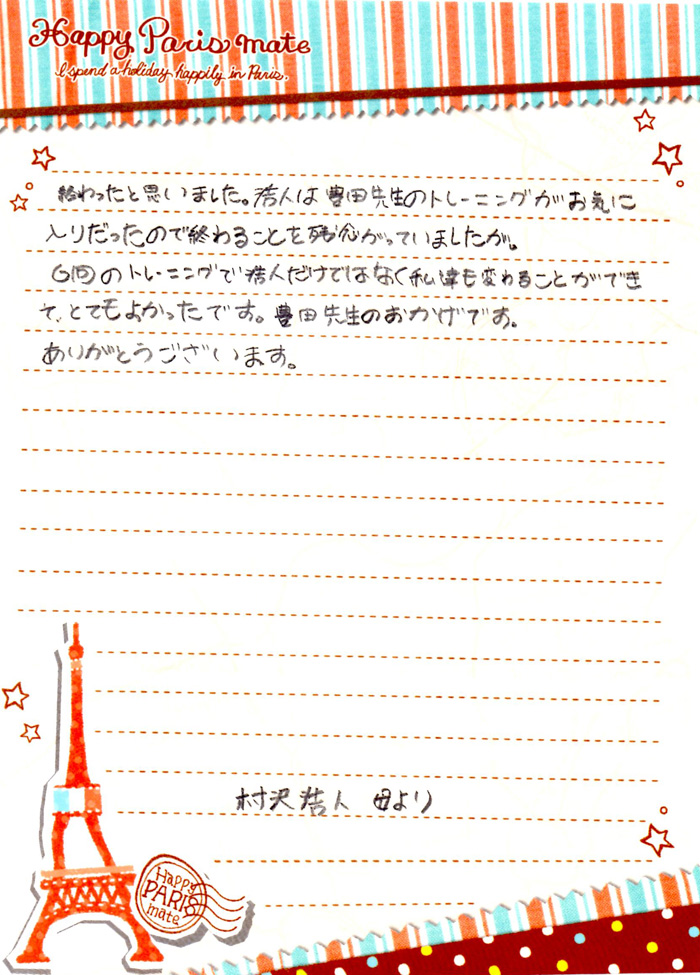 Happy Paris mate
I spend a holiday happily in Paris.
終わったと思いました。浩人は豊田先生のトレーニングがお気に
入りだったので終わることを残念がっていましたが。
6回のトレーニングで浩人だけではなく私達も変わることができ
て、とてもよかったです。豊田先生のおかげです。
ありがとうございます。
村沢浩人 母より
Happy
PARIS
mate